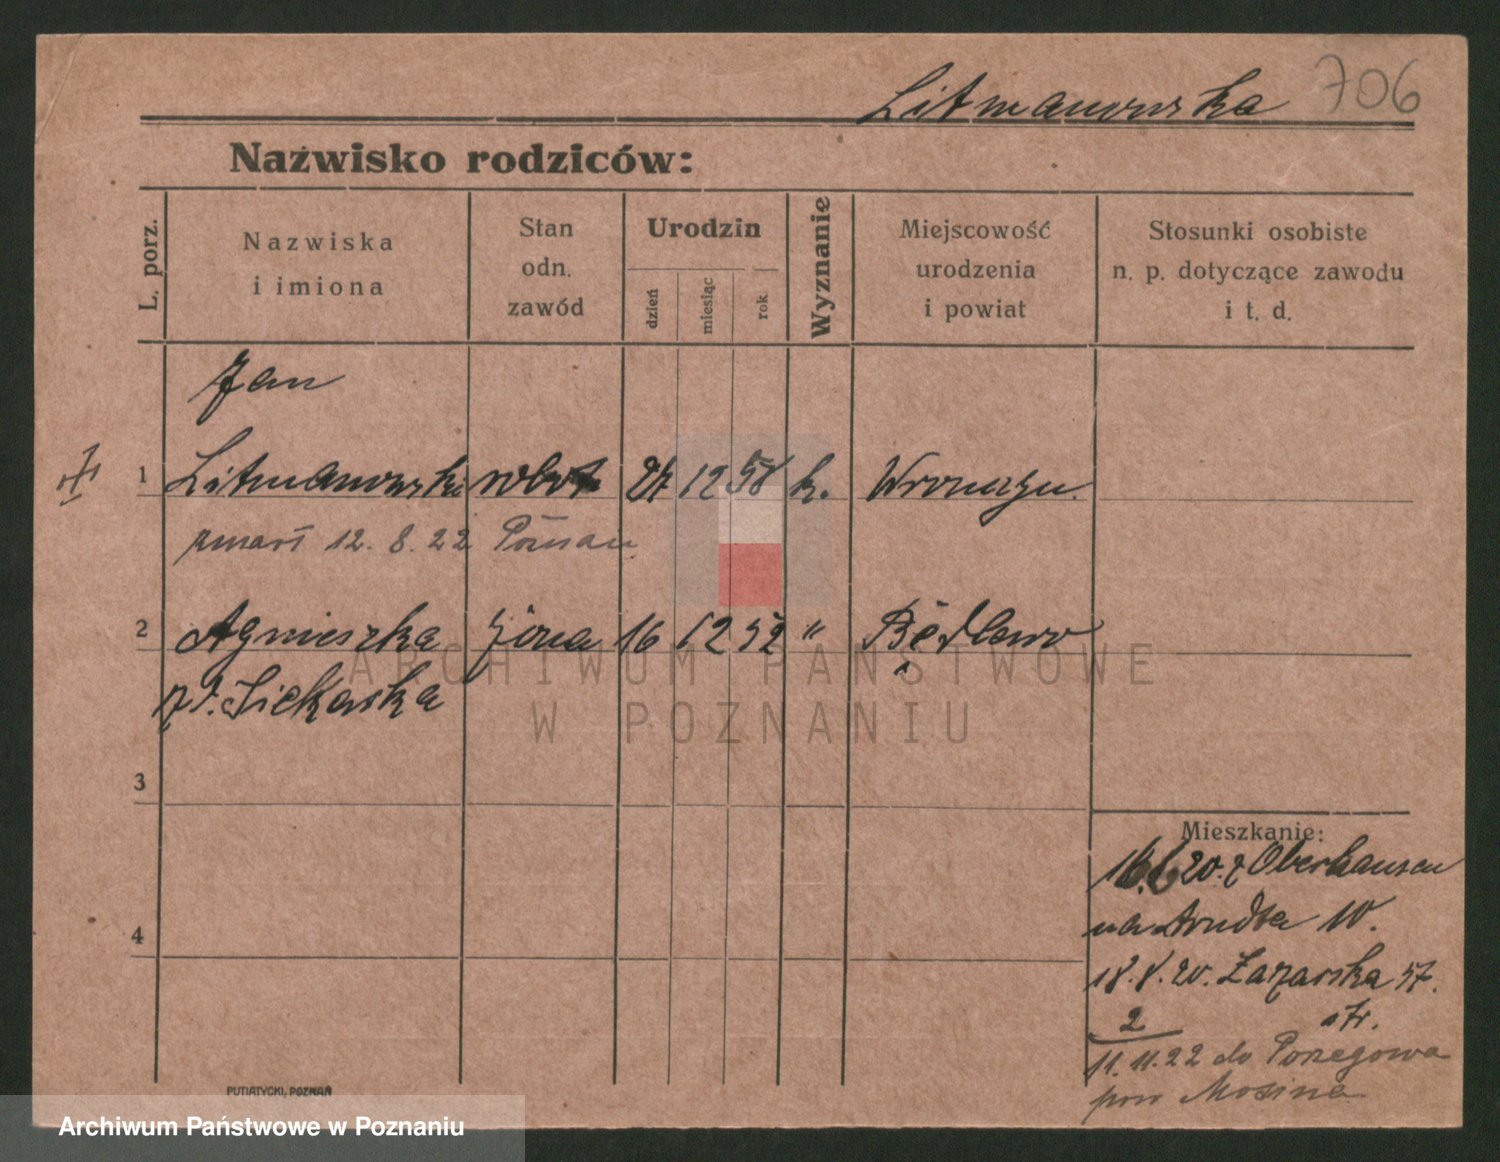 Litmanowska 706
Nazwisko rodziców:
L. porz.
Nazwiska
i imiona
Stan
odn.
zawód
Urodzin
dzień
miesiąc
rok
Wyznanie
Miejscowość
urodzenia
i powiat
Stosunki osobiste
n. p. dotyczące zawodu
i t. d.
Jan
1 Litmanowski robot 27 12 58 k.
zmarł 12. 8. 22 Poznań
2 Agnieszka żona 16 12 52 "
Siekarska
3
4
Mieszkanie:
20. z Oberhausen
na Arndta 10.
18.8.20. Łazarska 57.
2
11.11.22 do
pow
PUTIATYCKI, POZNAŃ
ARCHIWUM PAŃSTWOWE
W POZNANIU
Archiwum Państwowe w Poznaniu